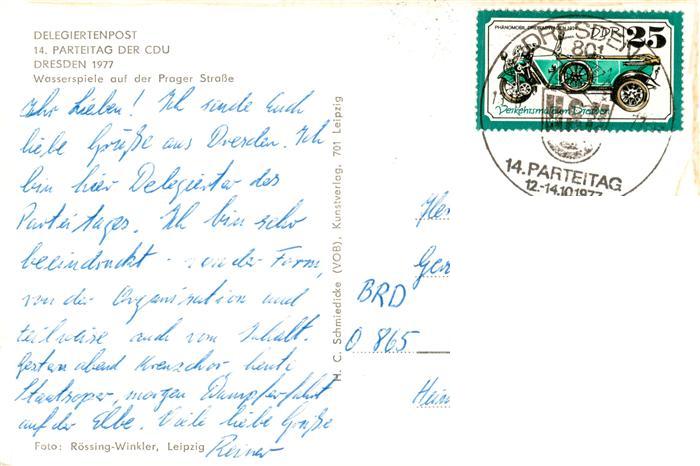 DELEGIERTENPOST
14. PARTEITAG DER CDU
DRESDEN 1977
Wasserspiele auf der Prager Straße
Ihr Lieben! Ich sende Euch
liebe Grüße aus Dresden. Ich
bin hier Delegierter des
Parteitages. Ich bin sehr
beeindruckt - von der Form,
von der Organisation und
teilweise auch vom Inhalt.
Gestern abend Kreuzchor, heute
Staatsoper, morgen Dampferfahrt
auf der Elbe. Viele liebe Grüße
Reiner
Foto: Rössing-Winkler, Leipzig
H. C. Schmiedicke (VOB), Kunstverlag, 701 Leipzig
DDR 25
Verkehrsmuseum Dresden
DRESDEN
801
14. PARTEITAG
12.-14.10.1977
BRD
O 865